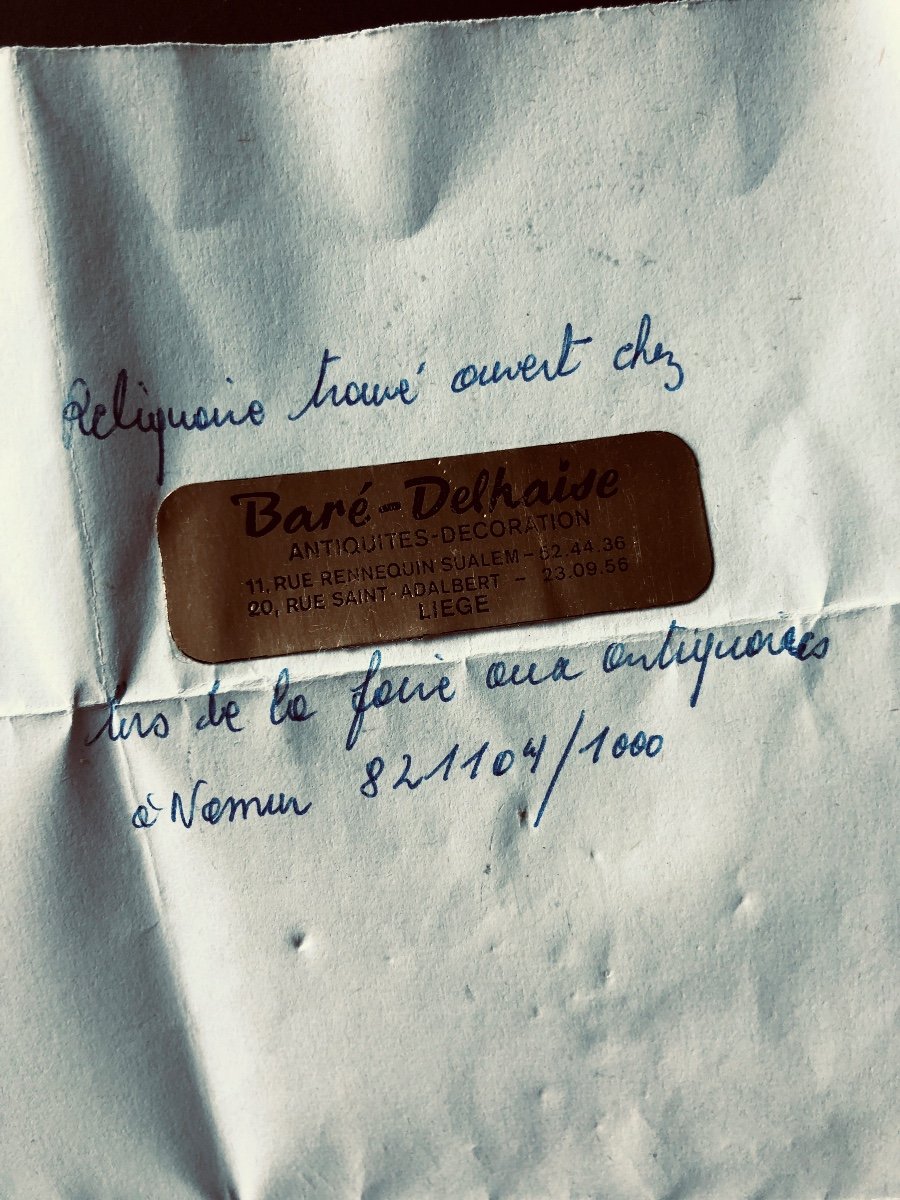 Reliquaire trouvé ouvert chez
Baré-Delhaise
ANTIQUITES-DECORATION
11, RUE RENNEQUIN SUALEM - 52.44.36
20, RUE SAINT-ADALBERT - 23.09.56
LIEGE
lors de la foire aux antiquaires
à Namur 821104/1000